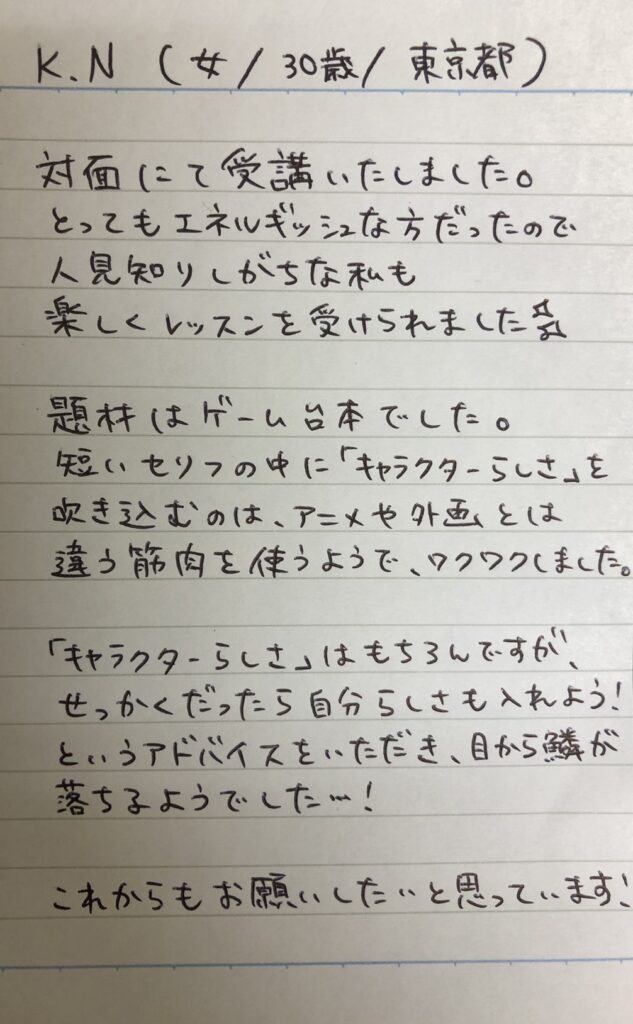 K.N (女/30歳/東京都)
対面にて受講いたしました。
とってもエネルギッシュな方だったので
人見知りしがちな私も
楽しくレッスンを受けられました
題材はゲーム台本でした。
短いセリフの中に「キャラクターらしさ」を
吹き込むのは、アニメや外画とは
違う筋肉を使うようで、ワクワクしました。
「キャラクターらしさ」はもちろんですが、
せっかくだったら自分らしさも入れよう!
というアドバイスをいただき、目から鱗が
落ちるようでした…!
これからもお願いしたいと思っています!